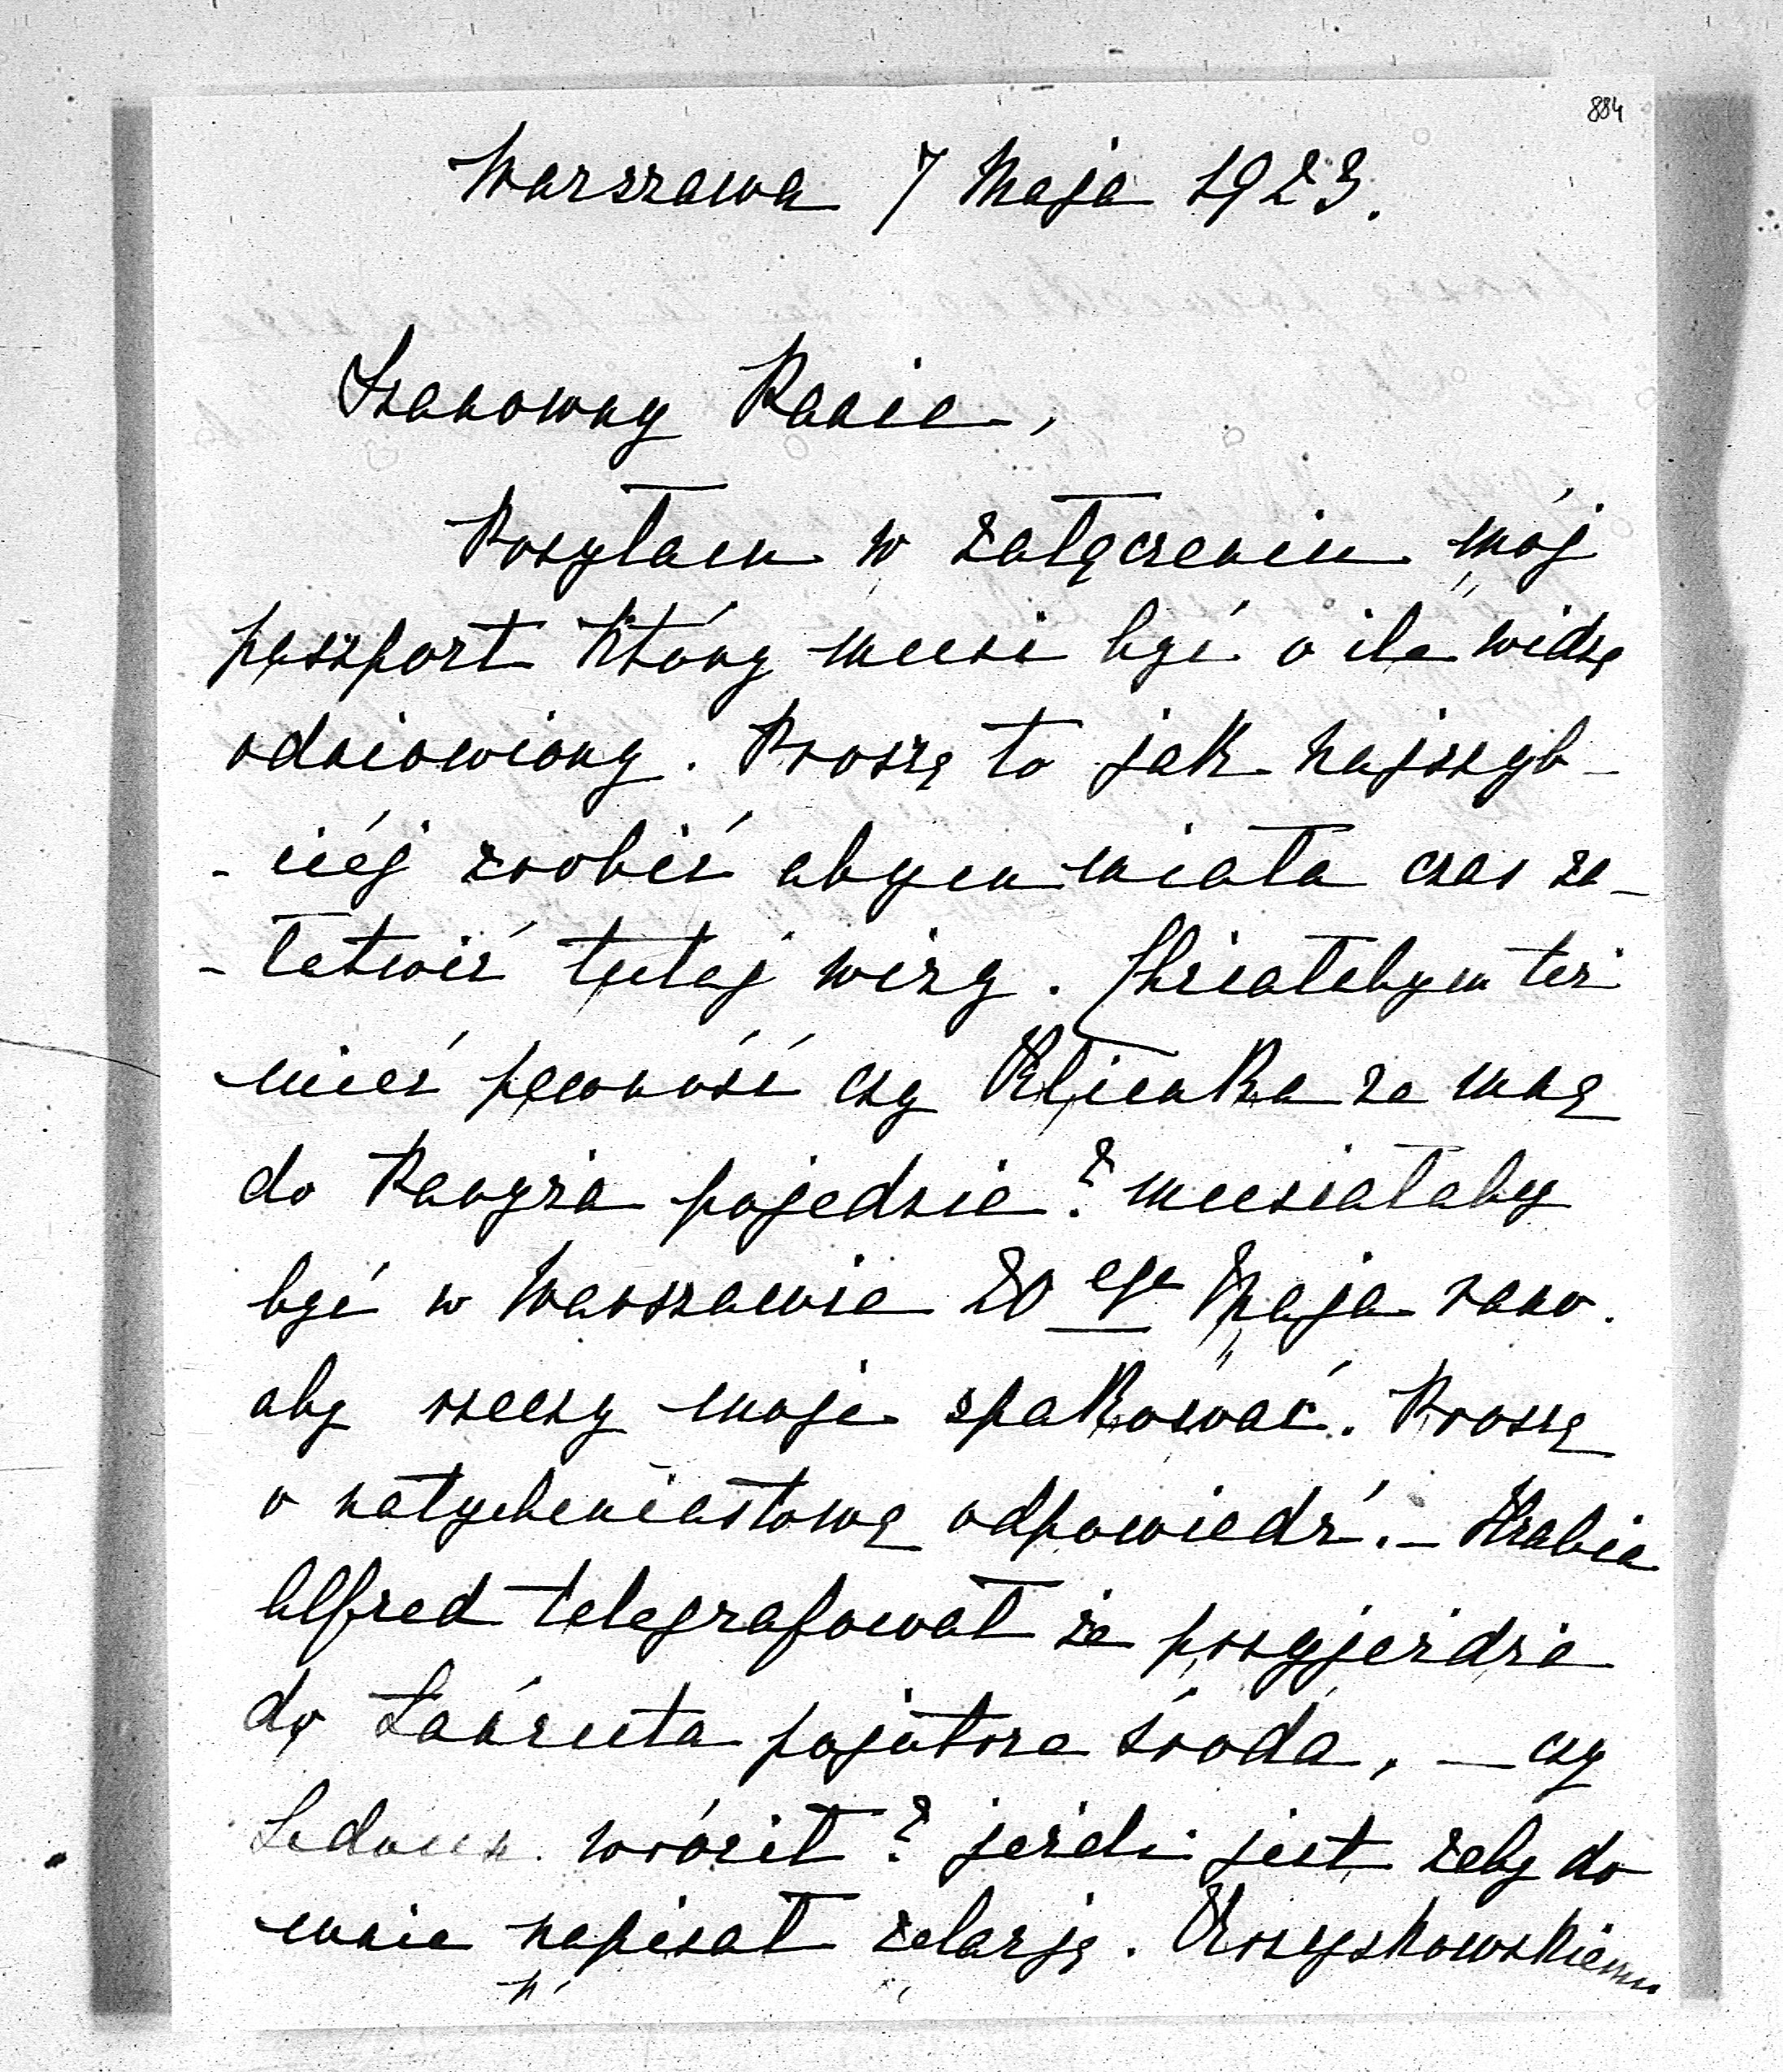 884
Warszawa 7 Maja 1923.
Szanowny Panie,
Posyłam w załączeniu mój
paszport który musi być o ile widzę
odniowiony. Proszę to jak najszyb-
-ciéj zrobić abym miała czas za-
-łatwić tutaj wizę. Chciałabym też
mieć pewność czy Klienka ze mną
do Paryża pojedzie? musiałaby
być w Warszawie 20 ego Maja rano.
aby rzeczy moje spakować. Proszę
o natychmiastową odpowiedź.- Hrabia
Alfred telegrafował że przyjeżdża
do Łańcuta pojutrze środa, — czy
wrócił? jeżeli jest żeby do
mnie napisał relację. Krzyszkowskiemu